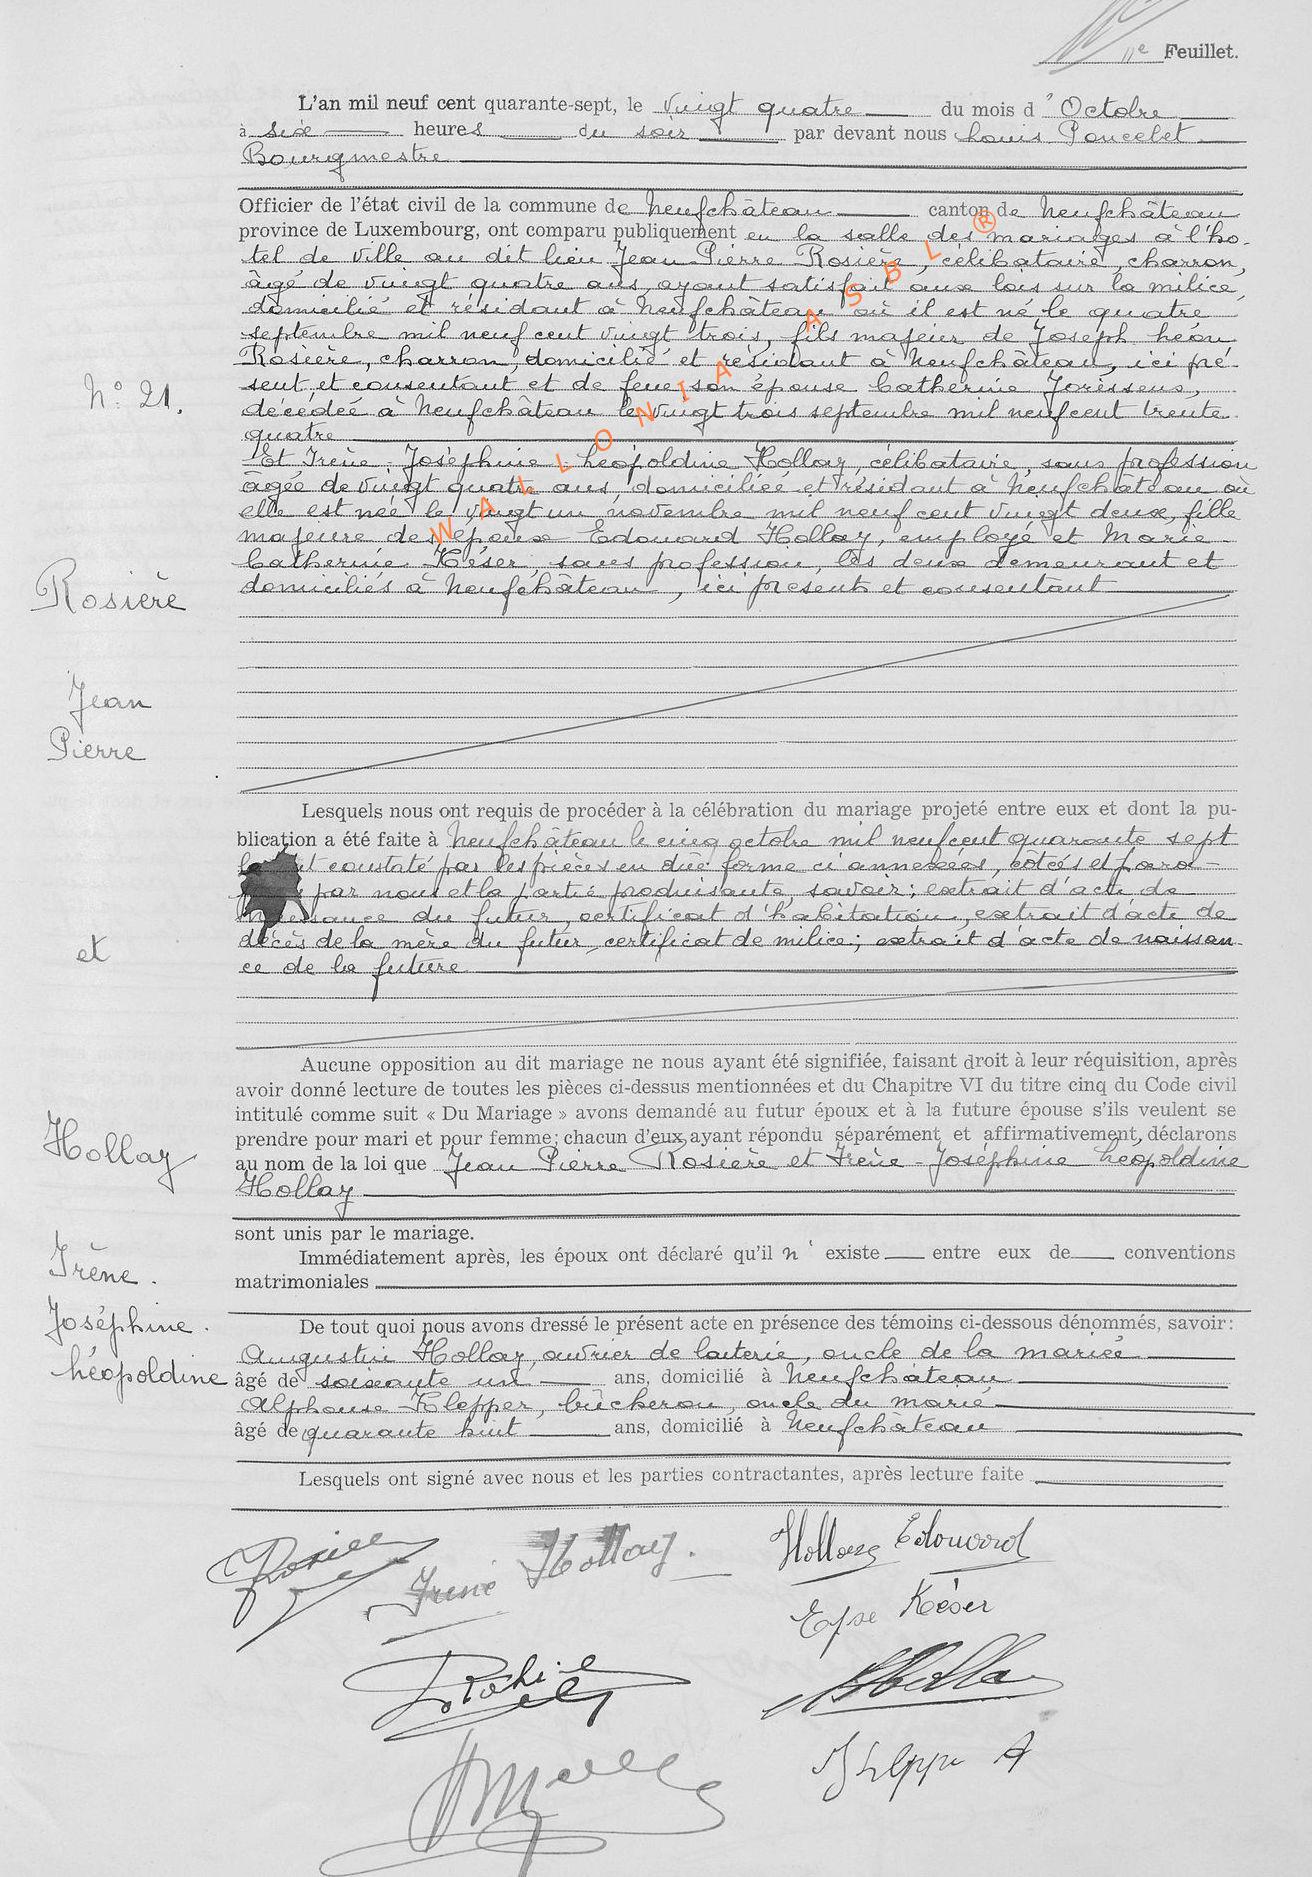 11e Feuillet.
L'an mil neuf cent quarante-sept, le vingt quatre du mois d'Octobre
à six heures du soir par devant nous Louis Poncelet
Bourgmestre
Officier de l'état civil de la commune de Neufchâteau canton de Neufchâteau
province de Luxembourg, ont comparu publiquement en la salle des mariages à l'hô-
tel de ville au dit lieu Jean Pierre Rosière, célibataire, charron,
âgé de vingt quatre ans, ayant satisfait aux lois sur la milice,
domicilié et résidant à Neufchâteau où il est né le quatre
septembre mil neuf cent vingt trois, fils majeur de Joseph Léon
Rosière, charron, domicilié et résidant à Neufchâteau, ici pré-
sent et consentant et de feue son épouse Catherine Jorissens,
décédée à Neufchâteau le vingt trois septembre mil neufcent trente
quatre
Et Irène, Joséphine Léopoldine Hollay, célibataire, sans profession
âgée de vingt quatre ans, domiciliée et résidant à Neufchâteau où
elle est née le vingt un novembre mil neuf cent vingt deux, fille
majeure des époux Edouard Hollay, employé et Marie-
Catherine Késer, sans profession, les deux demeurant et
domiciliés à Neufchâteau, ici présents et consentant
WALLONIA ASBL ®
N° 21.
Rosière
Jean
Pierre
et
Hollay
Irène.
Joséphine.
Léopoldine
Lesquels nous ont requis de procéder à la célébration du mariage projeté entre eux et dont la pu-
blication a été faite à Neufchâteau le cinq octobre mil neufcent quarante sept
constaté par les pièces en due forme ci annexées, côtés et para-
par nous et la partie produisante, savoir: extrait d'acte de
naissance du futur, certificat d'habitation, extrait d'acte de
décès de la mère du futur, certificat de milice; extrait d'acte de naissan-
ce de la future
Aucune opposition au dit mariage ne nous ayant été signifiée, faisant droit à leur réquisition, après
avoir donné lecture de toutes les pièces ci-dessus mentionnées et du Chapitre VI du titre cinq du Code civil
intitulé comme suit « Du Mariage » avons demandé au futur époux et à la future épouse s'ils veulent se
prendre pour mari et pour femme; chacun d'eux ayant répondu séparément et affirmativement, déclarons
au nom de la loi que Jean Pierre Rosière et Irène-Joséphine Léopoldine
Hollay
sont unis par le mariage.
Immédiatement après, les époux ont déclaré qu'il n'existe entre eux de conventions
matrimoniales
De tout quoi nous avons dressé le présent acte en présence des témoins ci-dessous dénommés, savoir:
Augustin Hollay, ouvrier de laiterie, oncle de la mariée
âgé de soixante un ans, domicilié à Neufchâteau
Alphonse Klepper, bûcheron, oncle du marié
âgé de quarante huit ans, domicilié à Neufchâteau
Lesquels ont signé avec nous et les parties contractantes, après lecture faite
Irène Hollay.
Hollay Edouard
Epse Késer